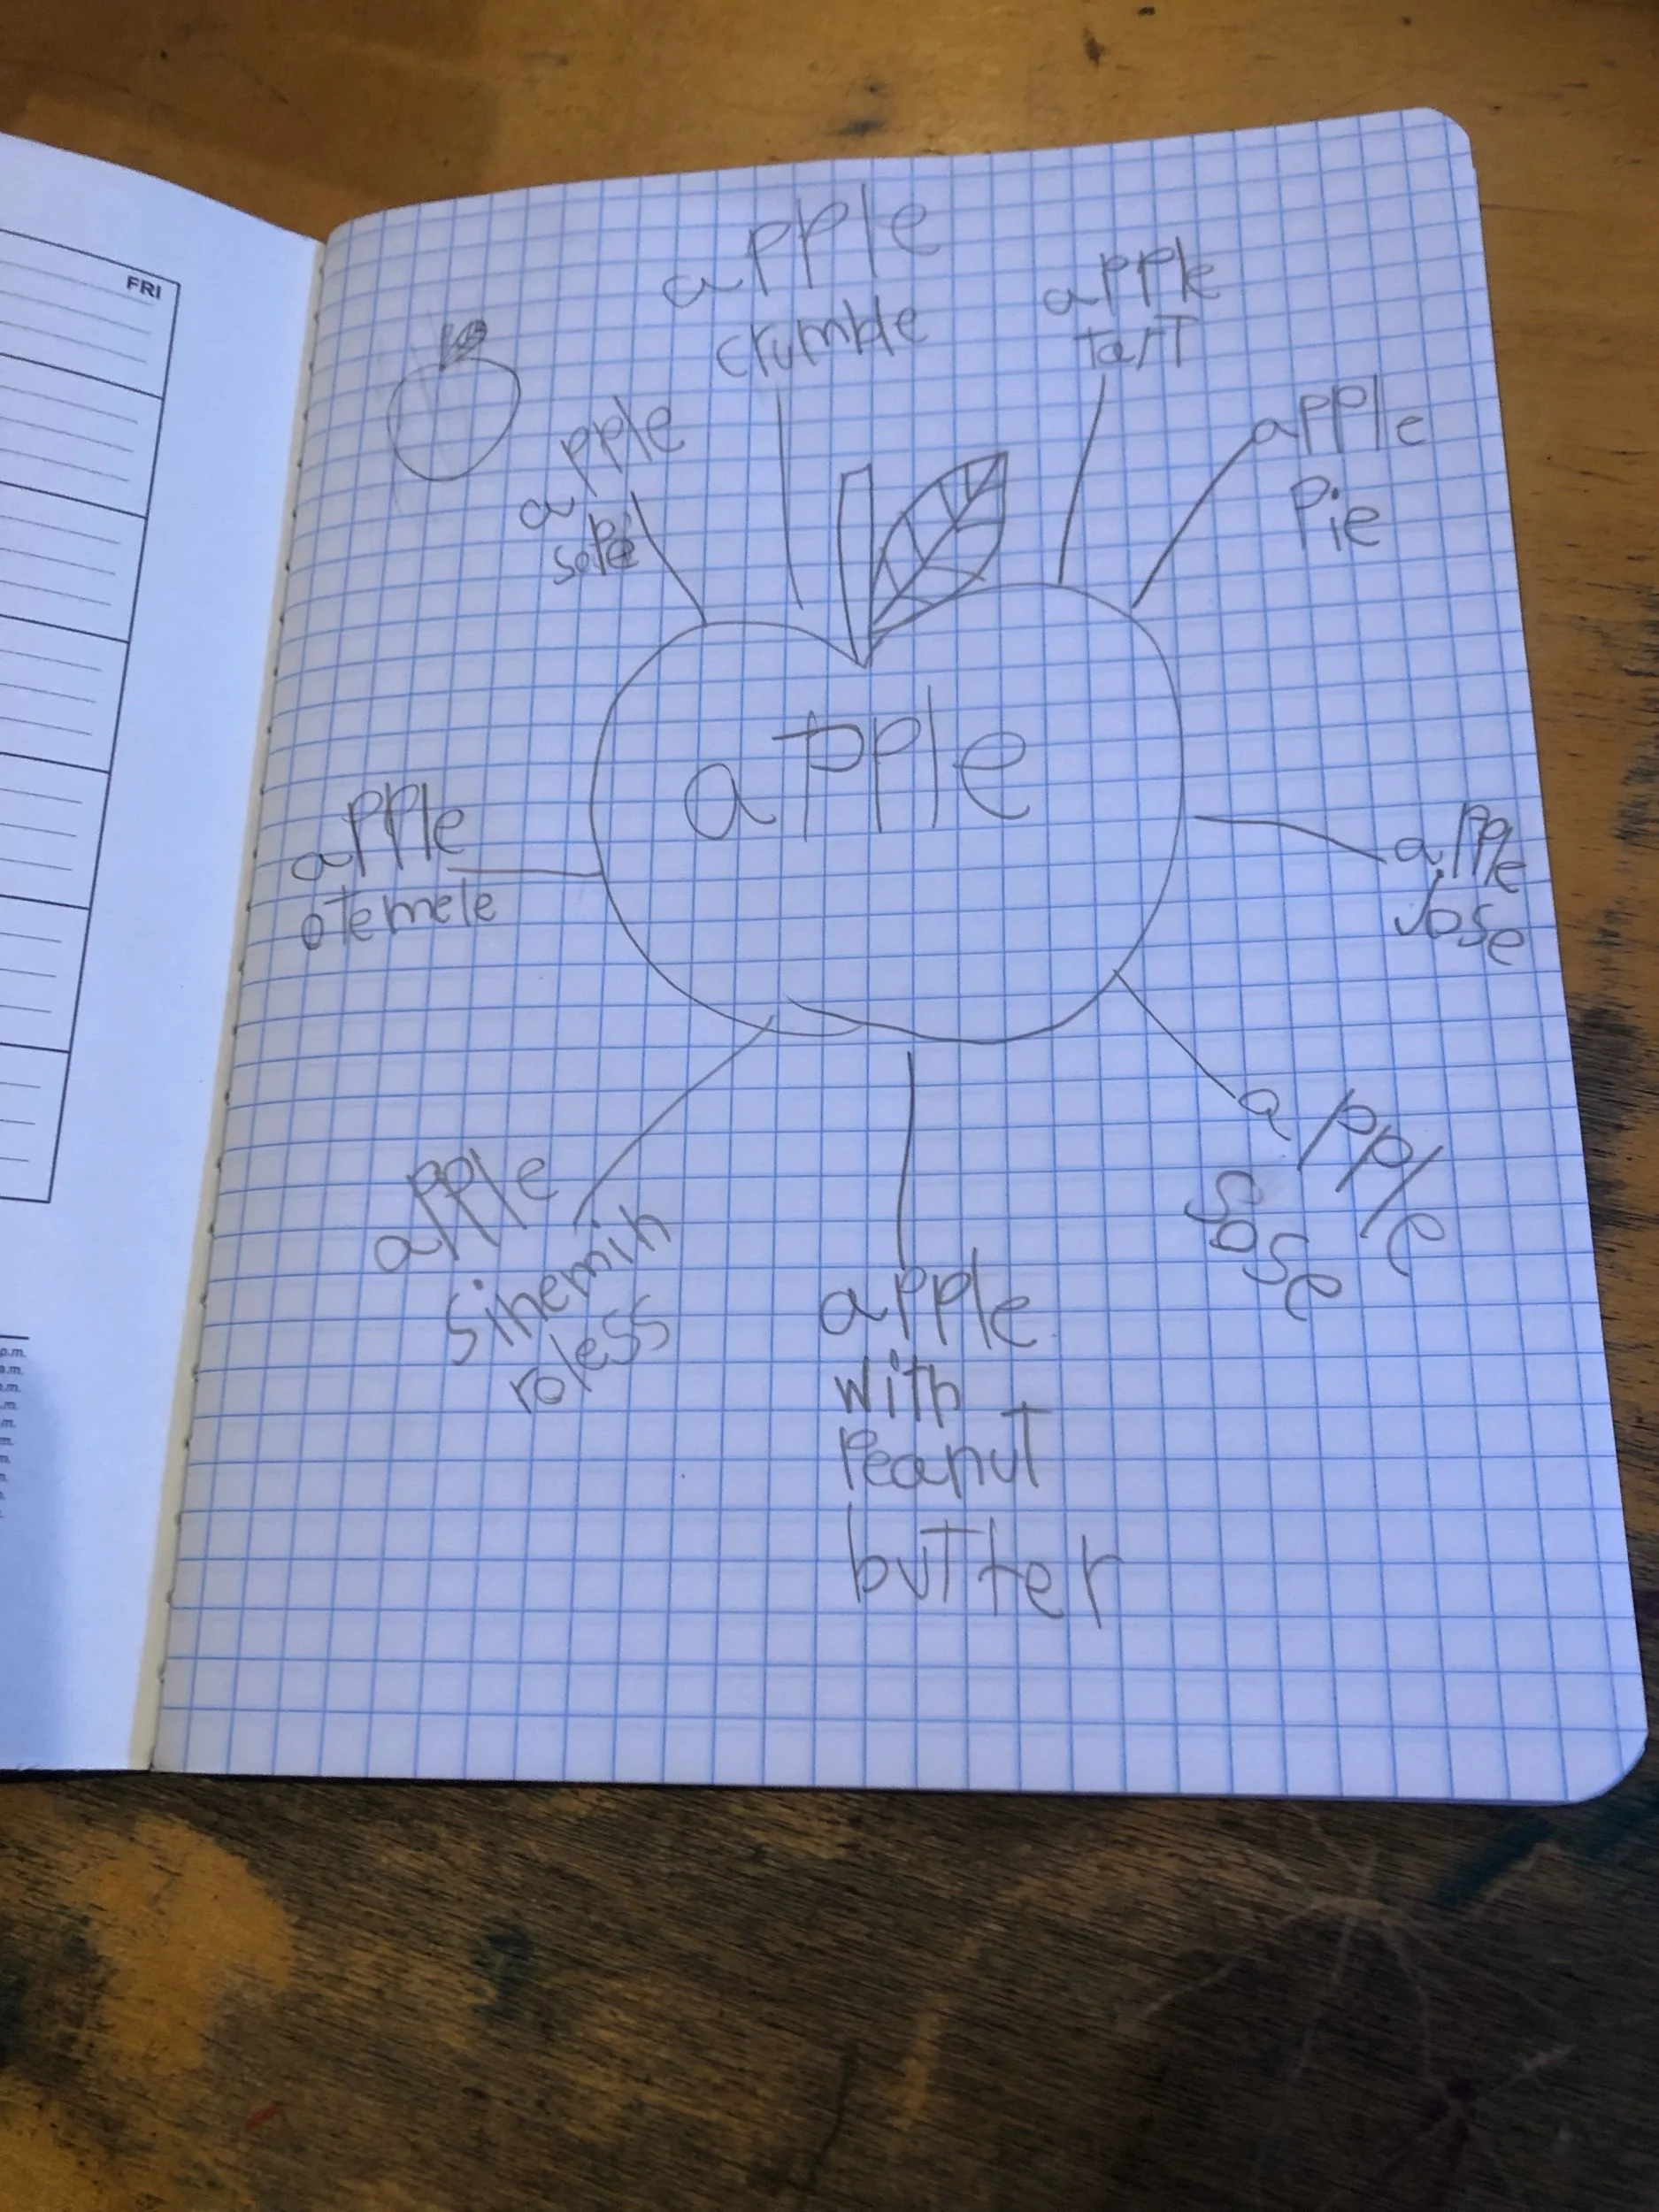 FRI
apple
crumble
apple
tart
apple
pie
apple
Jose
apple
sose
apple
with
Peanut
butter
apple
sinemin
roless
apple
otemele
apple
apple
p.m.
a.m.